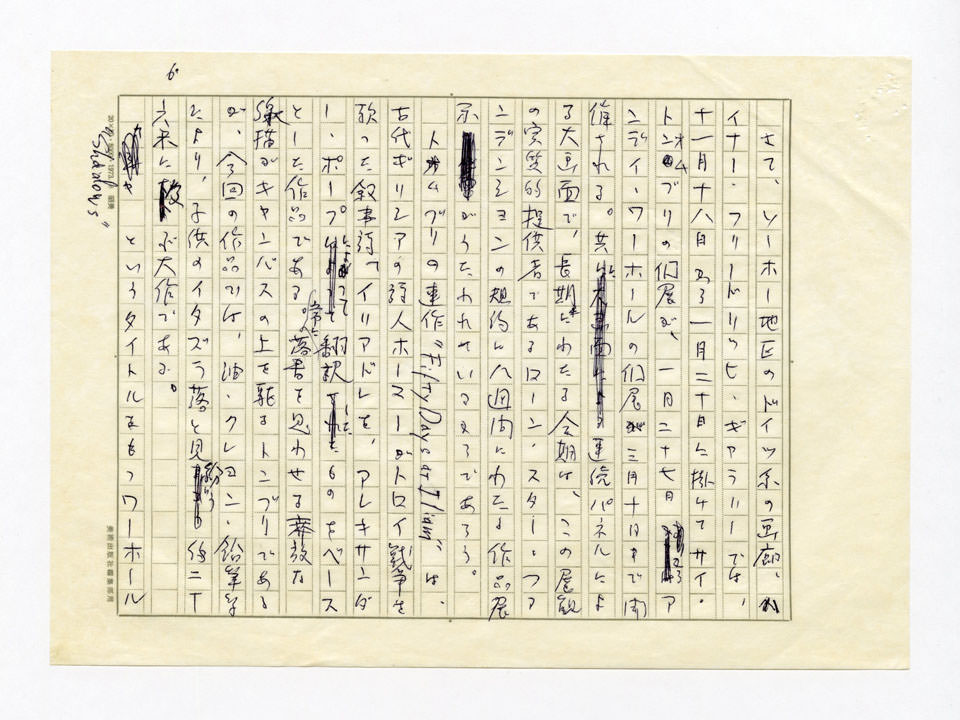 さて、ソーホー地区のドイツ系の画廊、ハ
イナー・フリードリッヒ・ギャラリーでは、
十一月十八日から一月二十日に掛けてサイ・
トオムブリの個展が、一月二十七日からア
ンディ・ワーホールの個展が三月十日まで開
催される。共に連続パネルによ
る大画面で、長期にわたる会期は、この展観
の実質的提供者であるローン・スター・ファ
ンデンションの規約に八週間にわたる作品展
示がうたわれているからであろう。
トムブリの連作"Fifty Days at Iliam"は、
古代ギリシアの詩人ホーマーがトロイ戦争を
歌った叙事詩「イリアド」を、アレキサンダ
ー・ポープによって翻訳したものをベース
とした作品である。落書を思わせる奔放な
線描がキャンバスの上を躍るトンブリである
が、今回の作品では、油・クレヨン・鉛筆等
により、子供のイタズラ落と見紛う
大作である。
"Shadows"
というタイトルをもつワーホール
6
美術出版社編集部用